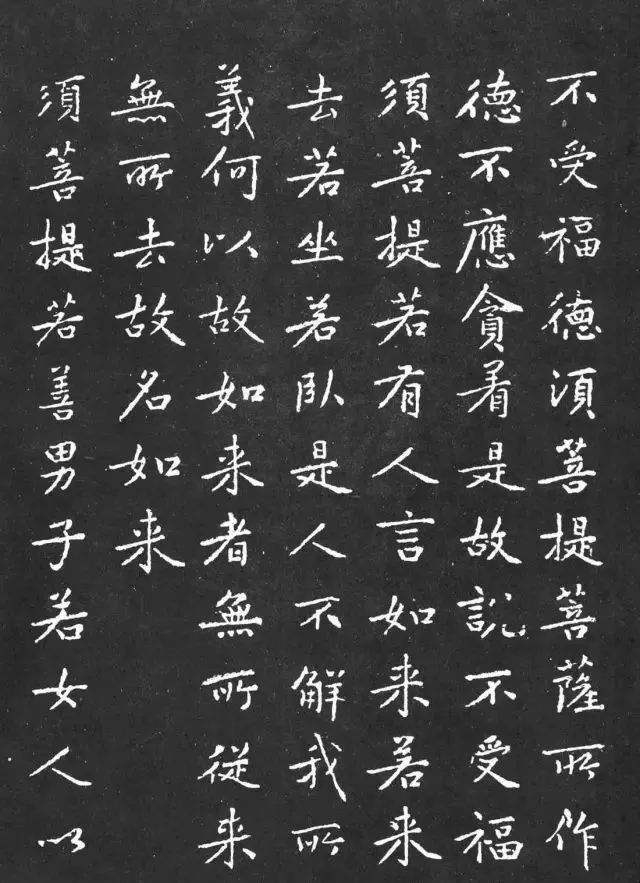 不受福德須菩提菩薩所作福
德不應貪著是故說不受福
須菩提若有人言如来若来
去若坐若臥是人不解我所
義何以故如来者無所從来
無所去故名如来
須菩提若善男子若女人以